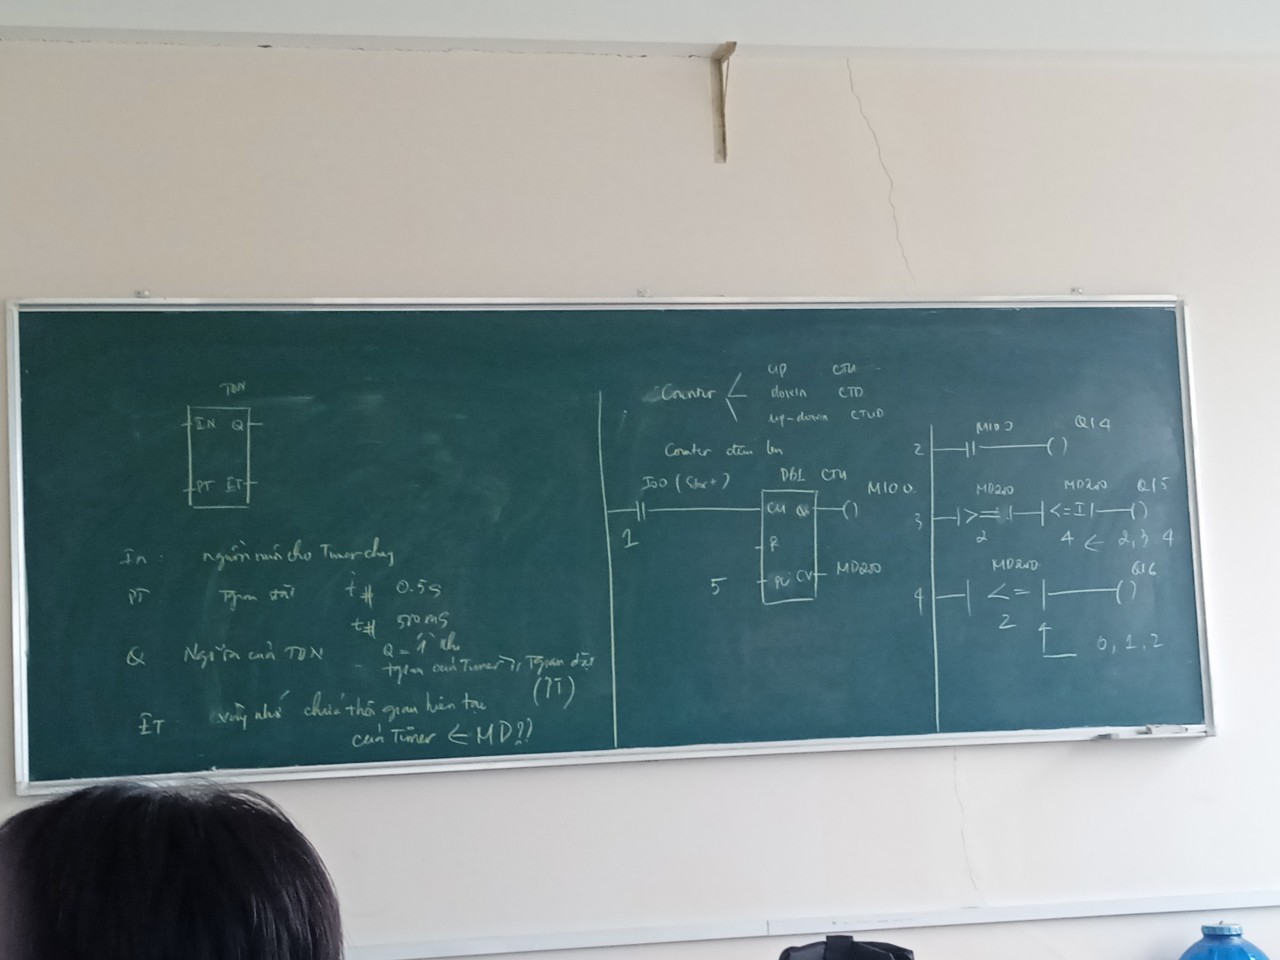 TON
IN Q
PT ET
In: nguồn nuôi cho Timer chạy
PT Tgian đặt t# 0.5s
t# 500ms
Q Ngõ ra của TON Q = 1 khi
tgian của Timer ≥ Tgian đặt
(PT)
ET vùng nhớ chứa thời gian hiện tại
của Timer ← MD??
Counter < up CTU
down CTD
up-down CTUD
Counter đếm lên
I00 (Start) DB1 CTU M100
CU Q
1
R
5 PV CV MD200
M100 Q14
2
MD200 MD200 Q15
3 >= <=I
2 4 ← 2, 3 4
MD200 Q16
4 <=
2
0, 1, 2